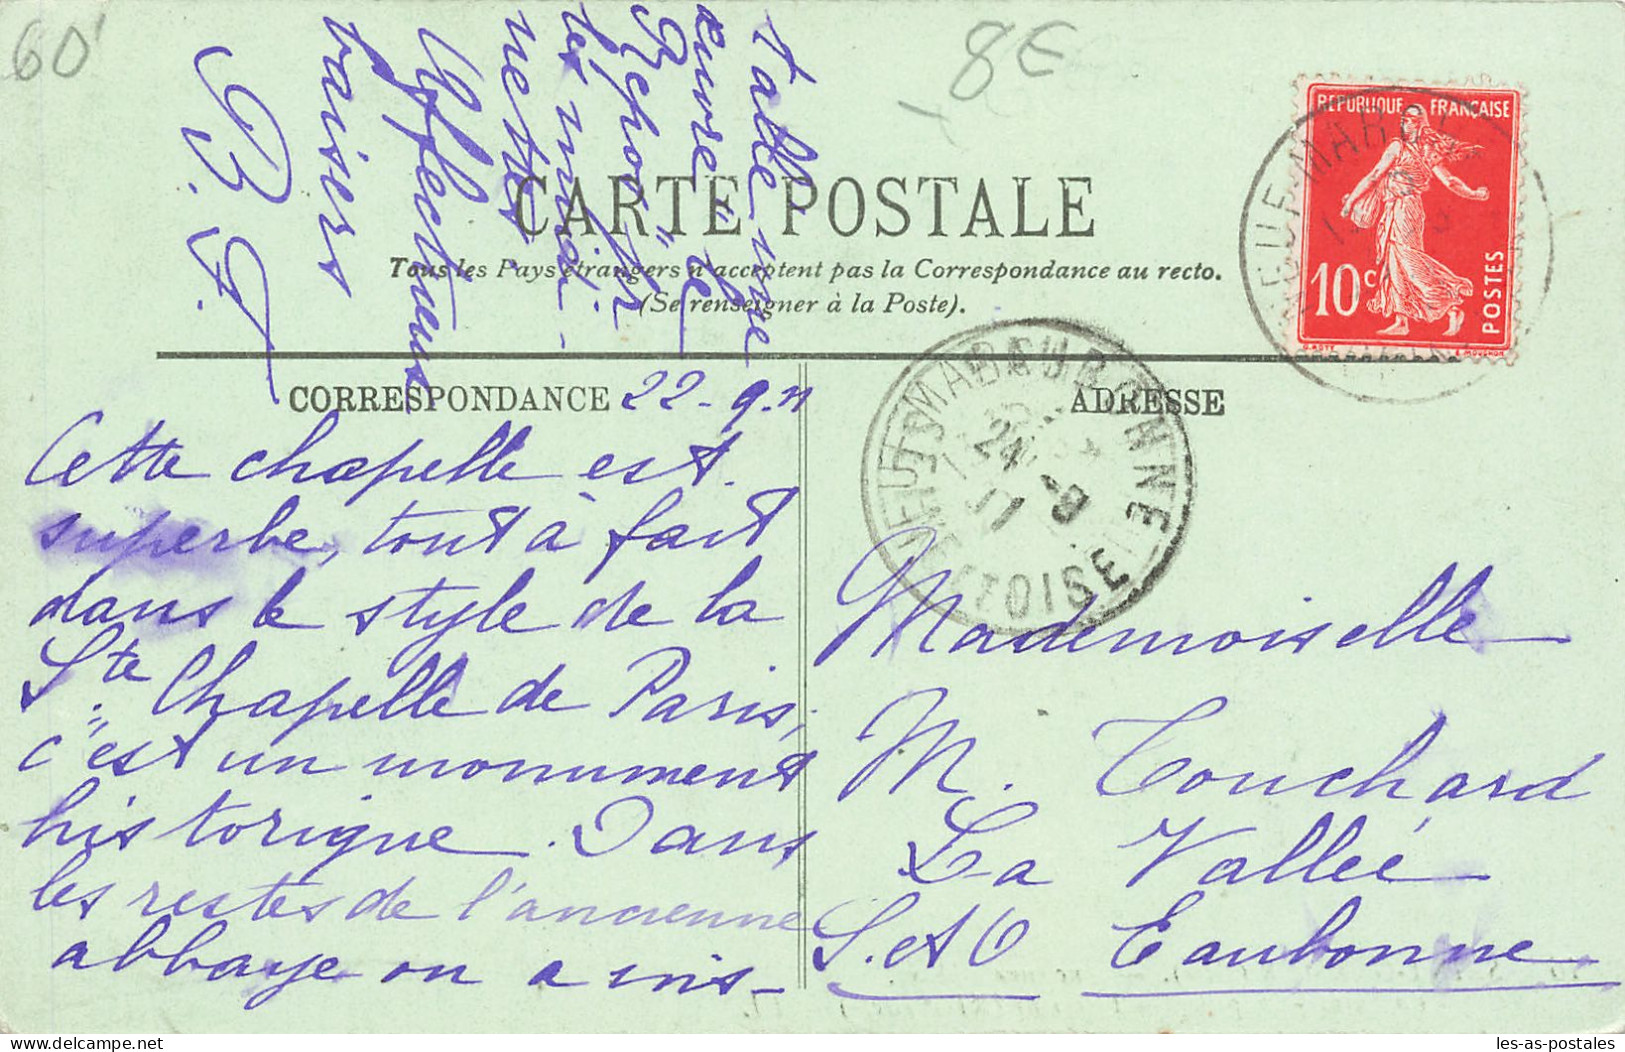 60
8€
CARTE POSTALE
Tous les Pays étrangers n'acceptent pas la Correspondance au recto.
(Se renseigner à la Poste).
REPUBLIQUE FRANÇAISE
10c
POSTES
EAUBONNE
24 -9
11
OISE
CORRESPONDANCE 22-9-11
Cette chapelle est
superbe, tout à fait
dans le style de la
Ste Chapelle de Paris,
c'est un monument
historique. Dans
les restes de l'ancienne
abbaye on a ins-
tallé une
œuvre de
"Réchou"
les midi-
nettes.
Affectueux
baisers
ADRESSE
Mademoiselle
M. Touchard
La Vallée
S. et O Eaubonne
les-as-postales
delcampe.net